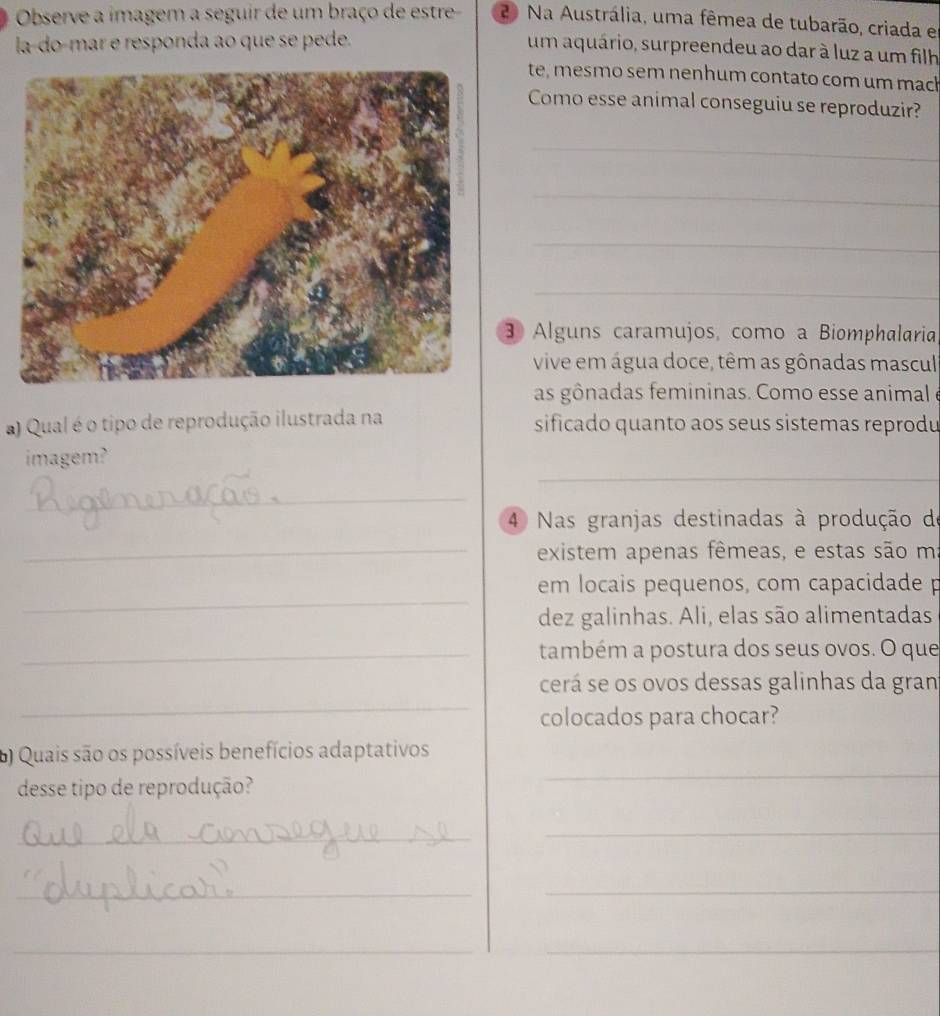 Observe a imagem a seguir de um braço de estre-
la-do-mar e responda ao que se pede.
a) Qual é o tipo de reprodução ilustrada na
imagem?
Regeneração.
b) Quais são os possíveis benefícios adaptativos
desse tipo de reprodução?
Que ela consegue se
"duplicar".
2 Na Austrália, uma fêmea de tubarão, criada e
um aquário, surpreendeu ao dar à luz a um filh
te, mesmo sem nenhum contato com um mach
Como esse animal conseguiu se reproduzir?
3 Alguns caramujos, como a Biomphalaria
vive em água doce, têm as gônadas mascul
as gônadas femininas. Como esse animal é
sificado quanto aos seus sistemas reprodu
4 Nas granjas destinadas à produção de
existem apenas fêmeas, e estas são ma
em locais pequenos, com capacidade p
dez galinhas. Ali, elas são alimentadas
também a postura dos seus ovos. O que
cerá se os ovos dessas galinhas da gran
colocados para chocar?